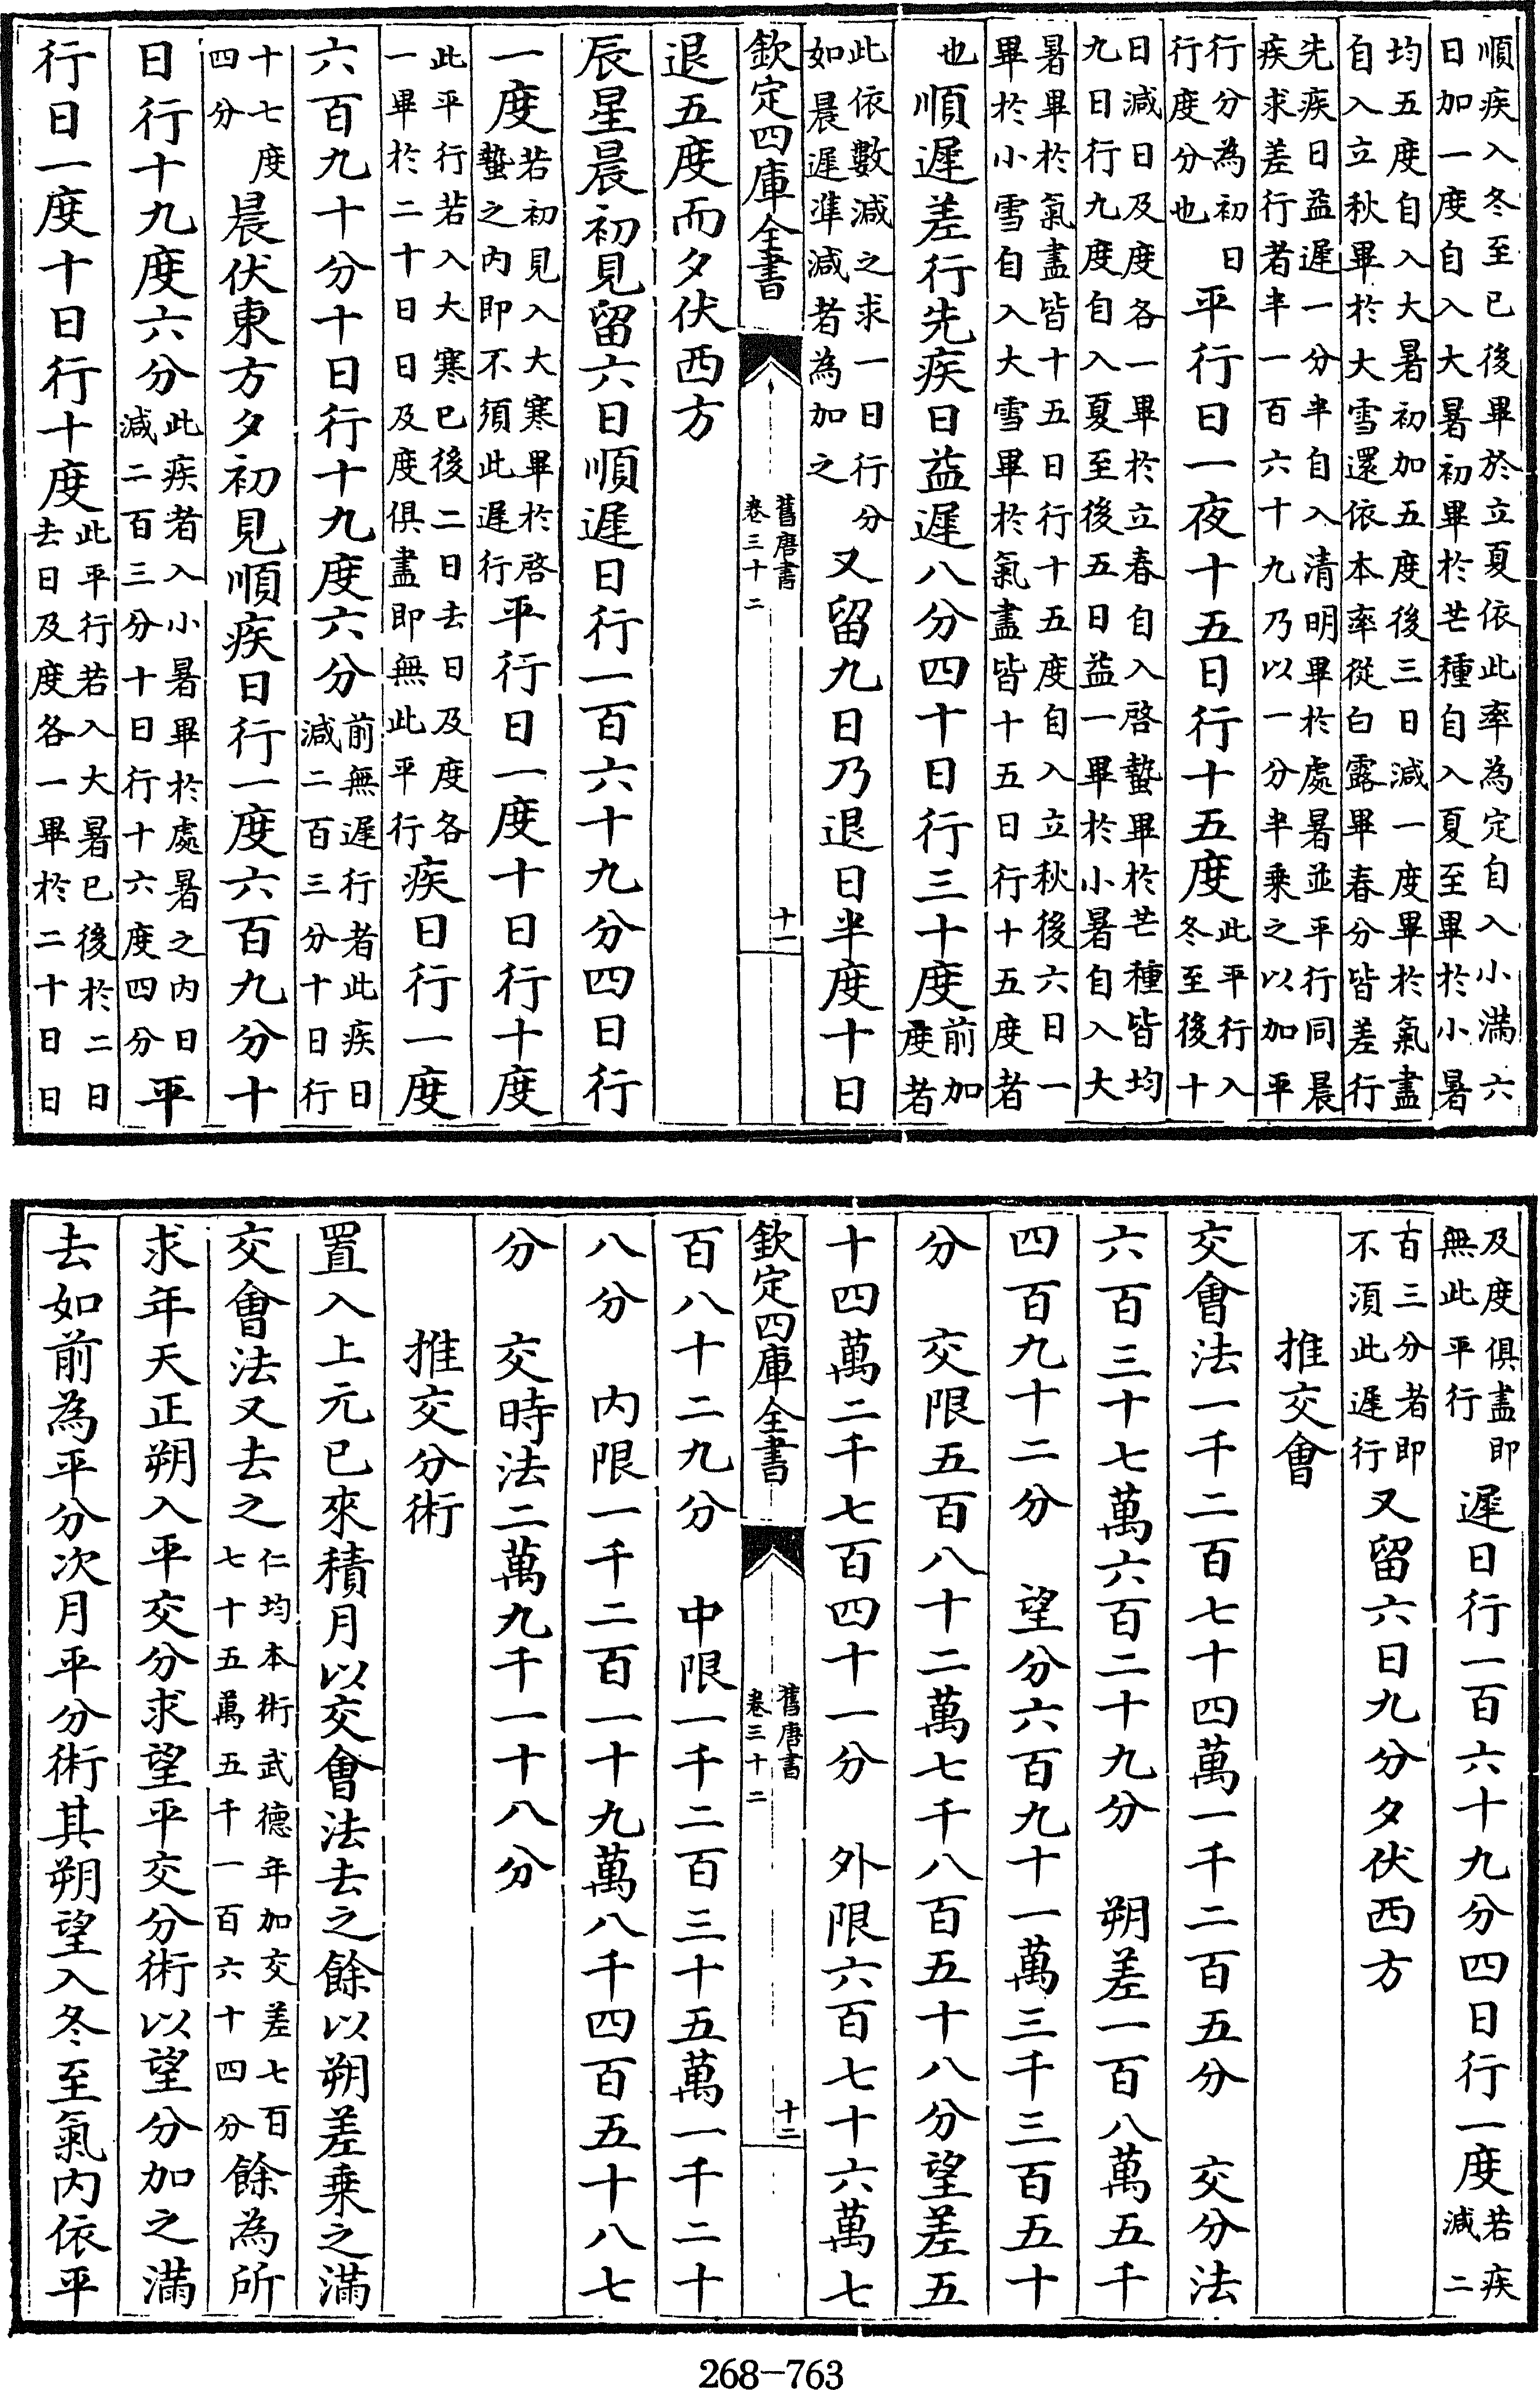 順疾入冬至已後畢於立夏依此率為定自入小滿六
日加一度自入大暑初畢於芒種自入夏至畢於小暑
均五度自入大暑初加五度後三日減一度畢於氣盡
自入立秋畢於大雪還依本率從白露畢春分皆差行
先疾日益遲一分半自入清明畢於處暑並平行同晨
疾求差行者半一百六十九乃以一分半乘之以加平
行分為初日行度分也平行日一夜十五日行十五度此平行入冬至後十
日減日及度各一畢於立春自入啓蟄畢於芒種皆均
九日行九度自入夏至後五日益一畢於小暑自入大
暑畢於氣盡皆十五日行十五度自入立秋後六日一
畢於小雪自入大雪畢於氣盡皆十五日行十五度者
也順遲差行先疾日益遲八分四十日行三十度前加度者
此依數減之求一日行分如晨遲準減者為加之又留九日乃退日半度十日
欽定四庫全書 舊唐書卷三十二 十一
退五度而夕伏西方
辰星晨初見留六日順遲日行一百六十九分四日行
一度若初見入大寒畢於啓蟄之內即不須此遲行平行日一度十日行十度
此平行若入大寒已後二日去日及度各一畢於二十日日及度俱盡即無此平行疾日行一度
六百九十分十日行十九度六分前無遲行者此疾日減二百三分十日行
十七度四分晨伏東方夕初見順疾日行一度六百九分十
日行十九度六分此疾者入小暑畢於處暑之內日減二百三分十日行十六度四分平
行日一度十日行十度此平行若入大暑已後於二日去日及度各一畢於二十日日
及度俱盡即無此平行遲日行一百六十九分四日行一度若疾減二
百三分者即不湏此遲行又留六日九分夕伏西方
推交會
交會法一千二百七十四萬一千二百五分 交分法
六百三十七萬六百二十九分 朔差一百八萬五千
四百九十二分 望分六百九十一萬三千三百五十
分 交限五百八十二萬七千八百五十八分望差五
十四萬二千七百四十一分 外限六百七十六萬七
欽定四庫全書 舊唐書卷三十二 十二
百八十二九分 中限一千二百三十五萬一千二十
八分 內限一千二百一十九萬八千四百五十八七
分 交時法二萬九千一十八分
推交分術
置入上元已來積月以交會法去之餘以朔差乗之滿
交會法又去之仁均本術武德年加交差七百七十五萬五千一百六十四分餘為所
求年天正朔入平交分求望平交分術以望分加之滿
去如前為平分次月平分術其朔望入冬至氣內依平
268-763